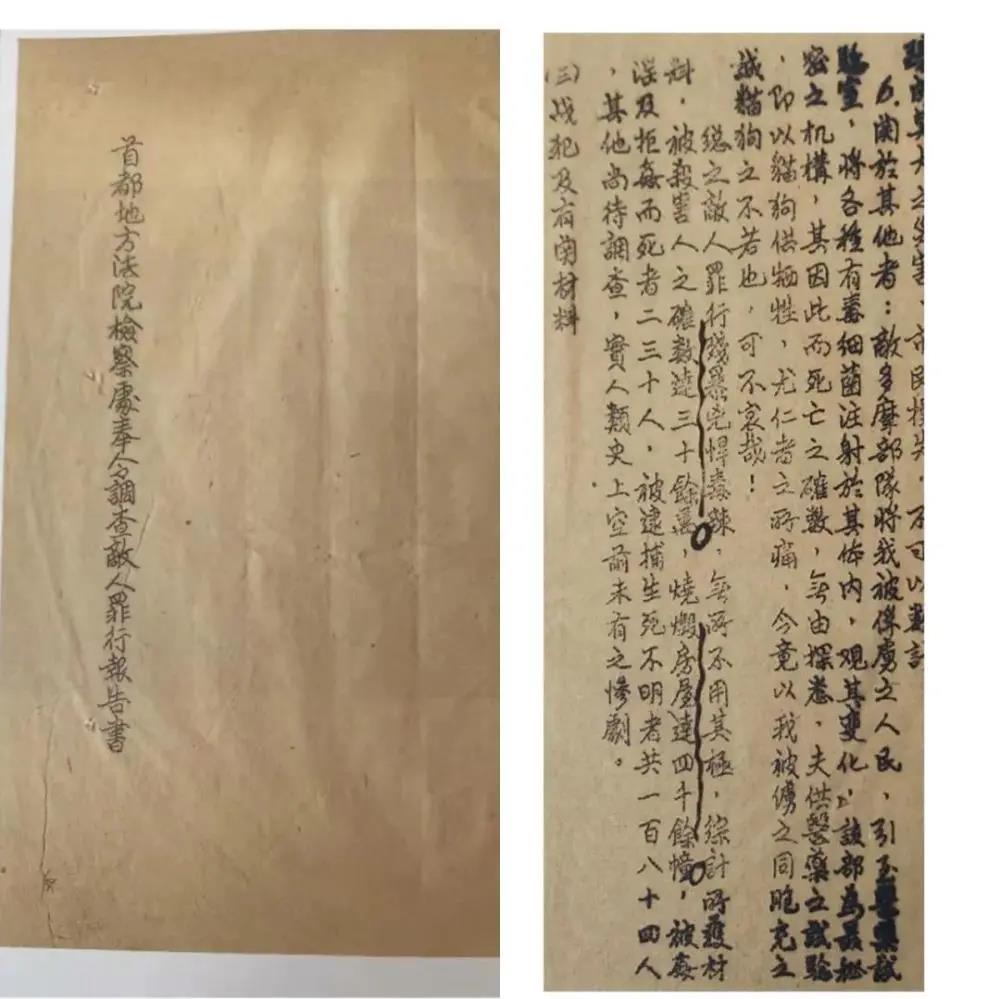 首都地方法院檢察處奉令調查敵人罪行報告書
之災害、市民損失，不可以數計
6.關於其他者：敵多摩部隊將我被俘虜之人民，引至醫藥試
驗室，將各種有毒細菌注射於其体内，观其变化，該部為最秘
密之机構，其因此而死亡之確数，無由探悉，夫供醫藥之試驗
，即以貓狗供牺牲，尤仁者之所痛，今竟以我被俘之同胞充之
誠貓狗之不若也，可不哀哉！
總之敵人罪行殘暴兇悍毒辣，無所不用其極，綜計所獲材
料，被殺害人之確数達三十餘萬，燒燬房屋達四千餘幢，被姦
淫及拒姦而死者二三十人，被逮捕生死不明者共一百八十四人
，其他尚待調查，實人類史上空前未有之慘劇。
(三)战犯及有関材料